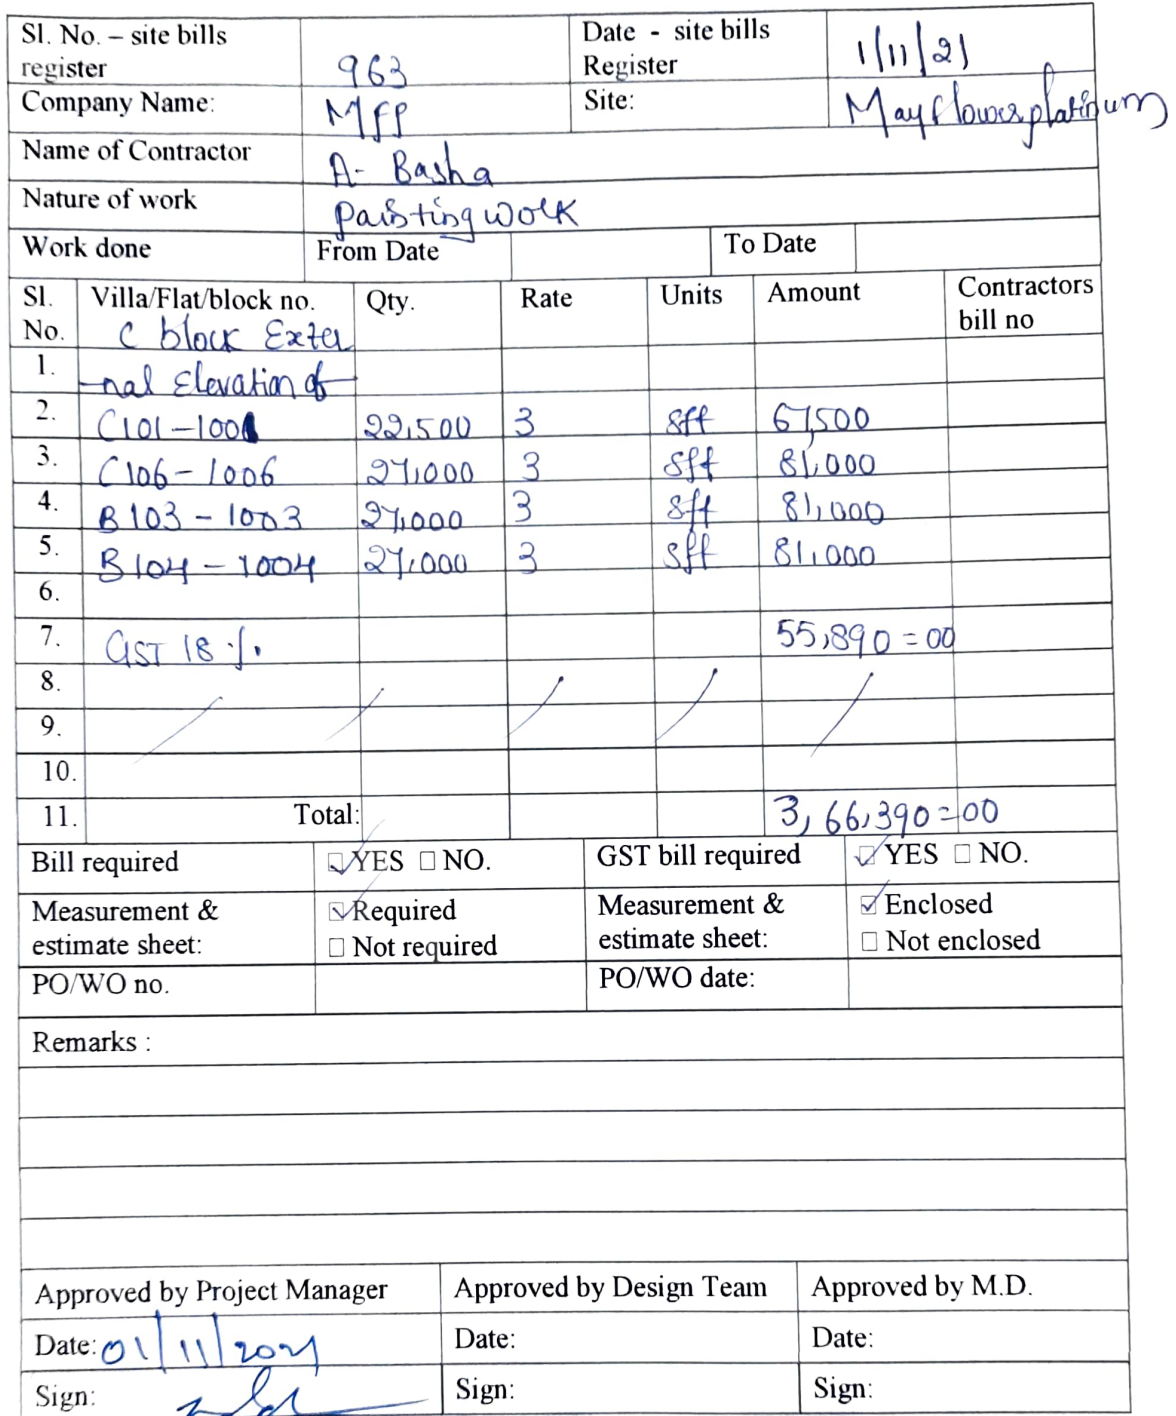 Sl. No. – site bills register 963 Date - site bills Register 1/11/21
Company Name: MFP Site: Mayflowerplatinum
Name of Contractor A- Basha
Nature of work Painting work
Work done From Date To Date
Sl. No. Villa/Flat/block no. Qty. Rate Units Amount Contractors bill no
C block Exter
1. nal Elevation of
2. C101-1001 22,500 3 sft 67,500
3. C106-1006 27,000 3 sft 81,000
4. B103-1003 27,000 3 sft 81,000
5. B104-1004 27,000 3 sft 81,000
6.
7. GST 18 % 55,890=00
8.
9.
10.
11. Total: 3,66,390=00
Bill required ☑YES ☐NO. GST bill required ☑YES ☐NO.
Measurement & estimate sheet: ☑Required ☐Not required Measurement & estimate sheet: ☑Enclosed ☐Not enclosed
PO/WO no. PO/WO date:
Remarks :
Approved by Project Manager Approved by Design Team Approved by M.D.
Date: 01/11/2021 Date: Date:
Sign: Sign: Sign: